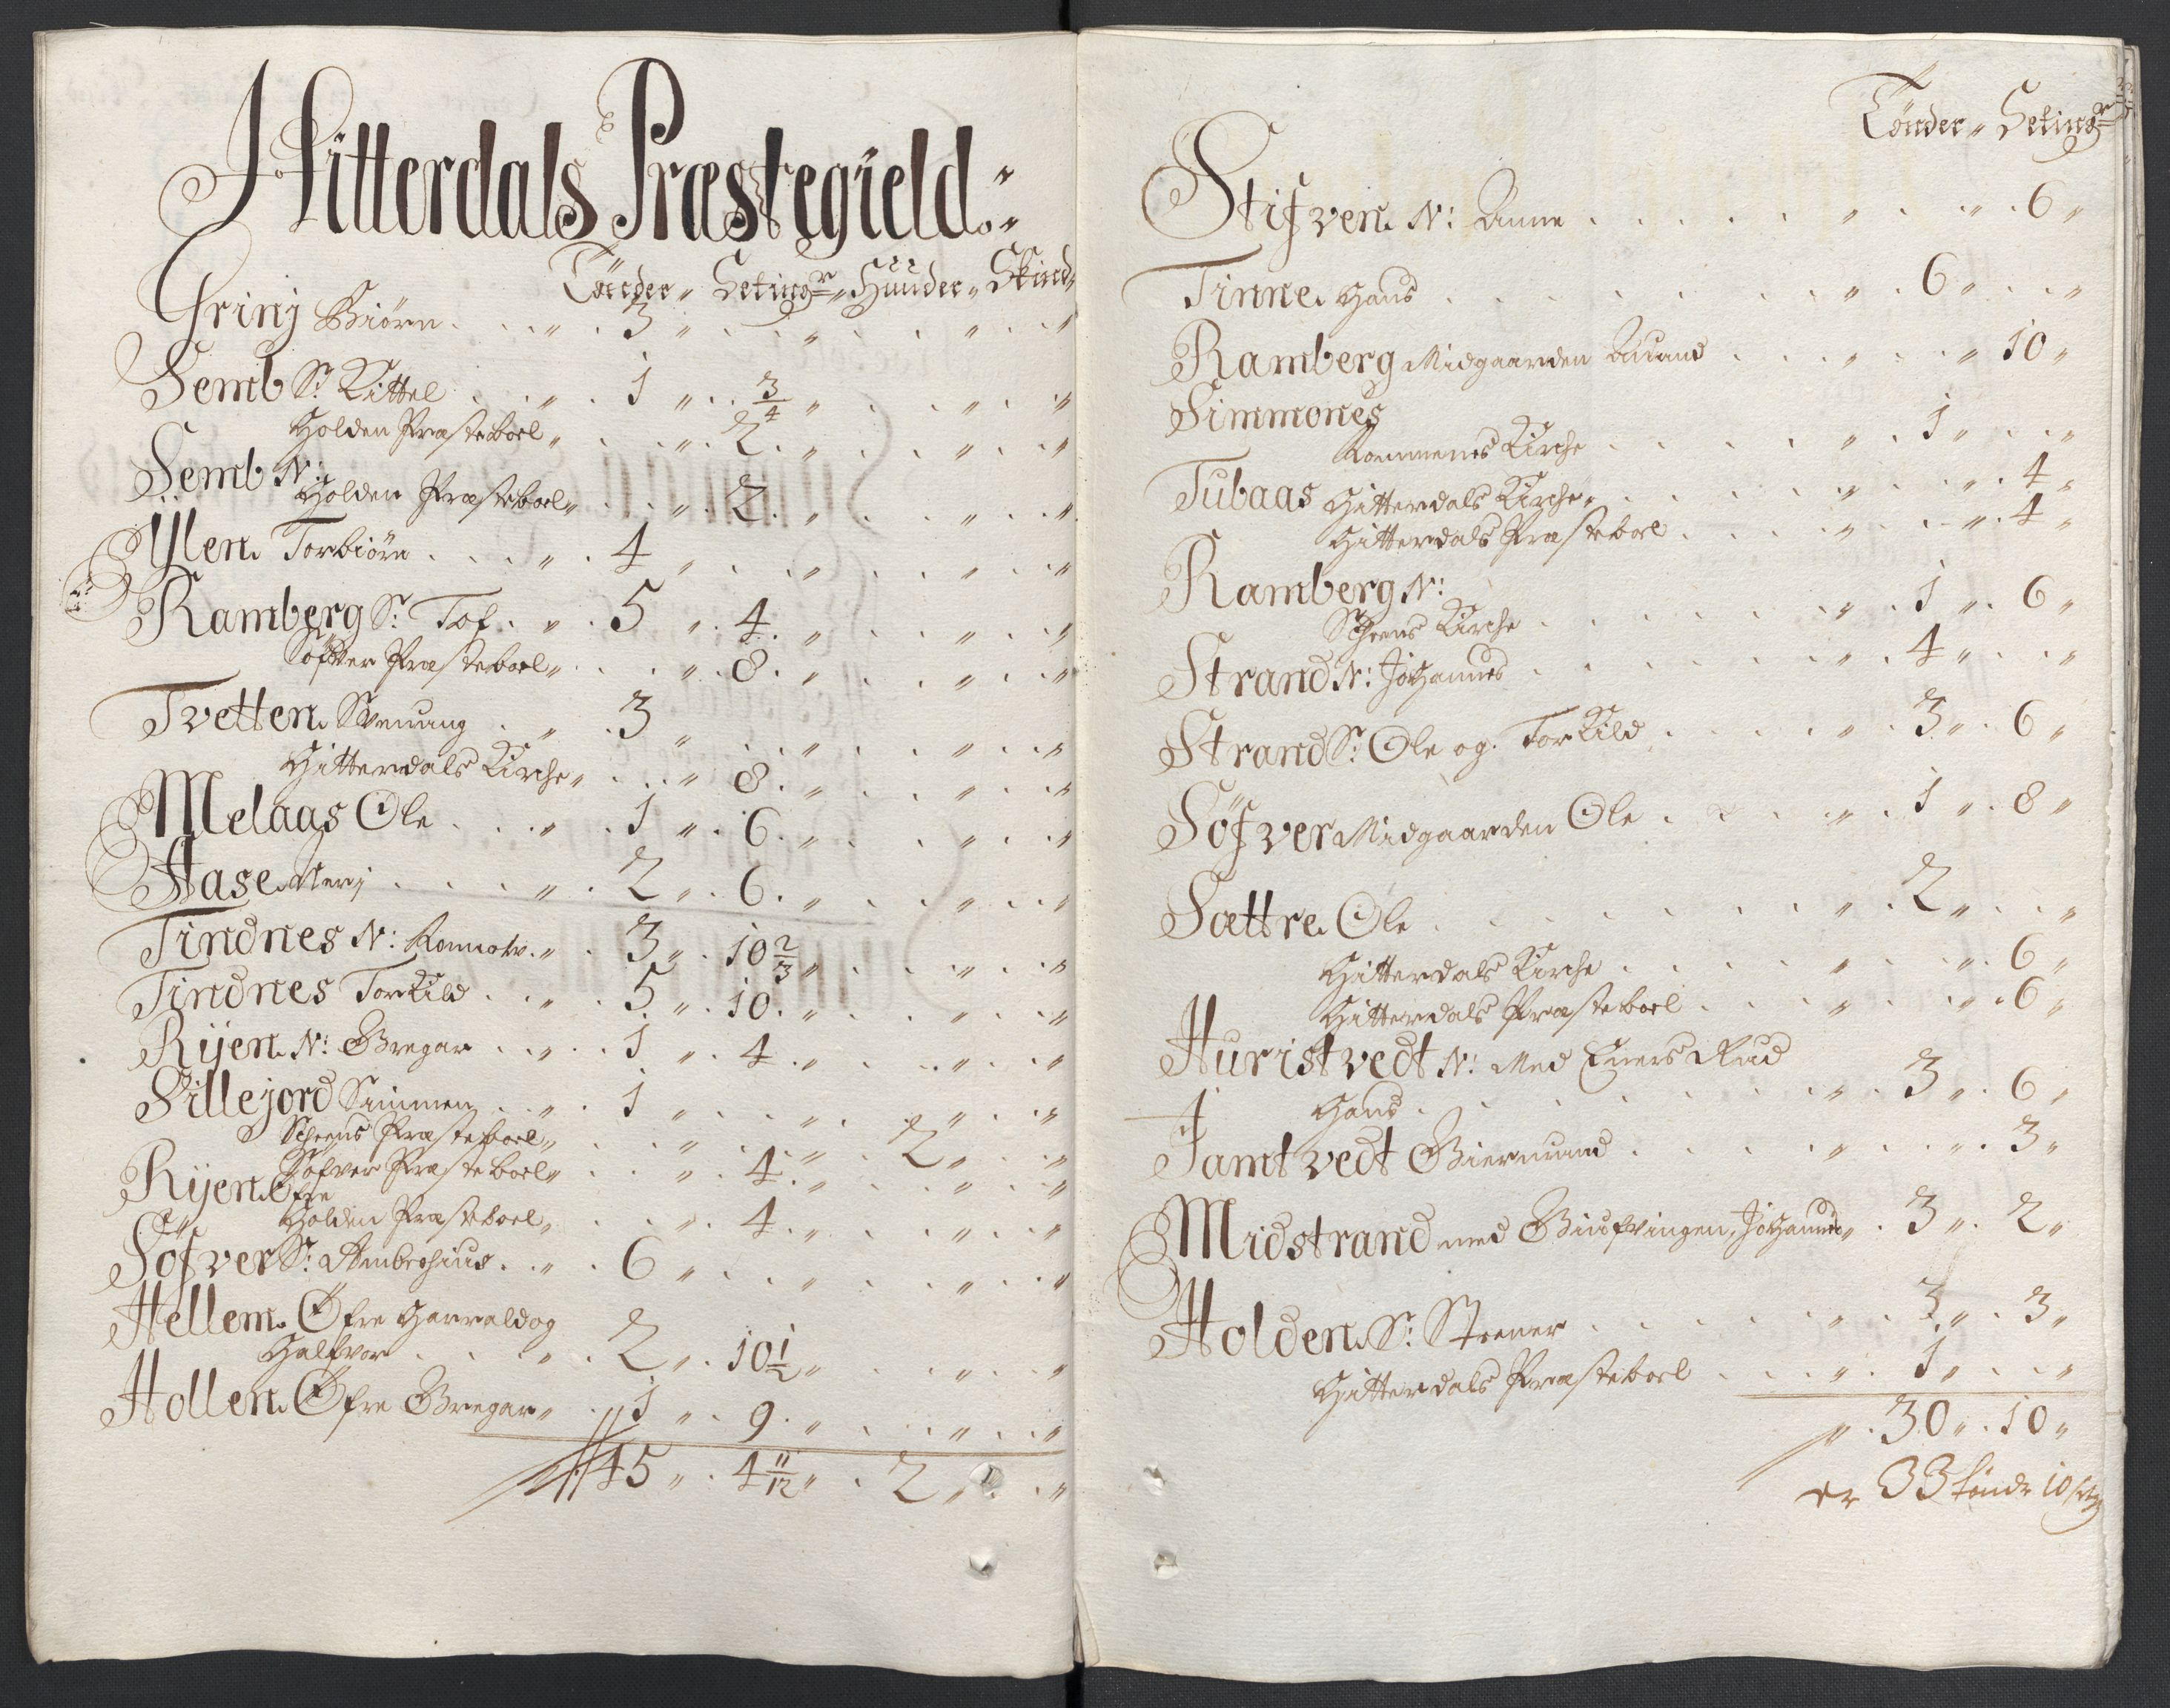 Hitterdals Præstegield
Tönder Setingr Huuder Skind
Grini Biörn 3
Semb Sr Kittel 1 3/4
Holden Præsteboel 2
Semb N:
Holden Præsteboel 2
Ÿlen Torbiörn 4
Ramberg Sr Tof 5 4
Söfver Præsteboel 8
Tvetten Svenung 3
Hitterdals Kirche 8
Melaas Ole 1 6
Aase 2 6
Tindnes N: 3 10 2/3
Tindnes Torkild 5 10
Rÿen N: Gregar 1 4
Sillejord Simmen 1
Scheens Præsteboel 2
Söfver Præsteboel 4
Rÿen Öfre
Holden Præsteboel 4
Söfver Sr Ambrosius 6
Hellem Öfre Harrald og
Halfvor 2 10 1/2
Hollen Öfre Gregar 1 9
45 4 11/12 2
Tönder Setingr
Stifven N: Anne 6
Tinne Hans 6
Ramberg Midgaarden Amund 10
Simmones
Rommenes Kirche 1
Tubaas Hitterdals Kirche 4
Hitterdals Præsteboel 4
Ramberg N:
Scheens Kirche 1 6
Strand N: Johannes 4
Strand Sr Ole og Torkild 3 6
Söfver Midgaarden Ole 1 8
Sættre Ole 2
Hitterdals Kirche 6
Hitterdals Præsteboel 6
Huristvedt N: Med Eners Rud
Hans 3 6
Jamtvedt Giermund 3
Midstrand med Johannes 3 2
Holden Sr Steener 3 3
Hitterdals Præsteboel 1
30 10
er 33 tönde 10 setg